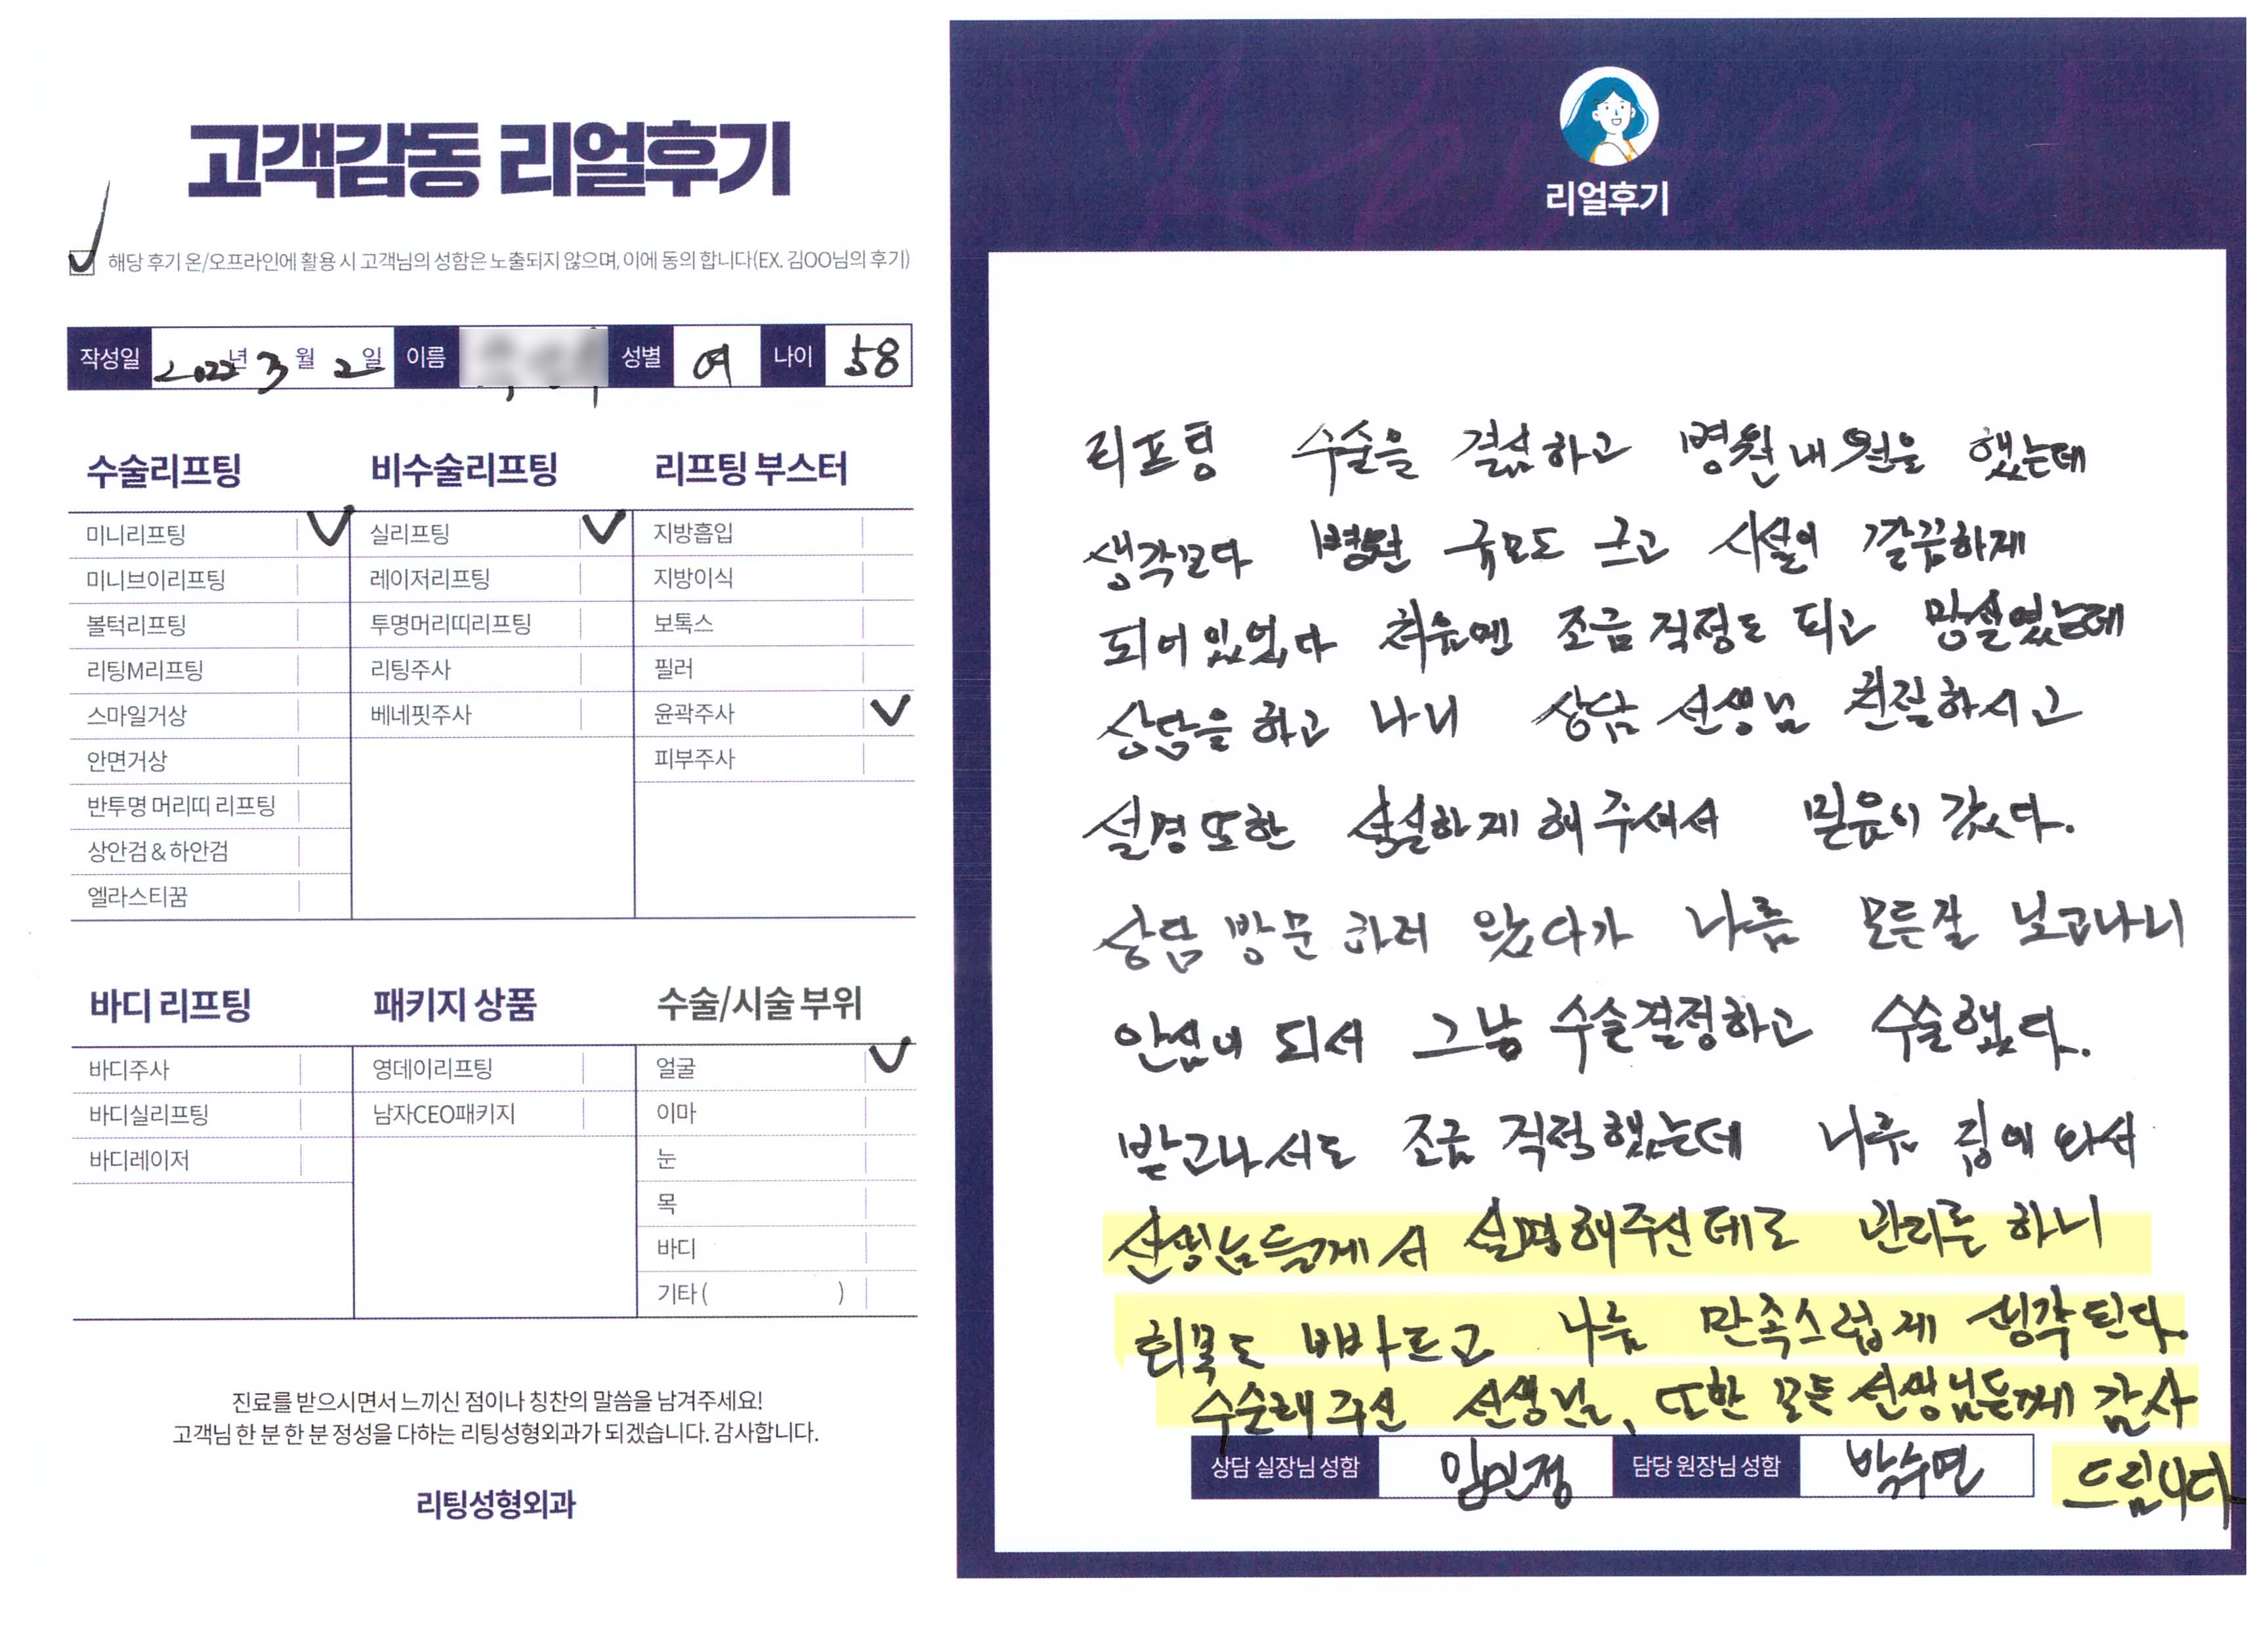 고객감동 리얼후기
해당 후기 온/오프라인에 활용 시 고객님의 성함은 노출되지 않으며, 이에 동의 합니다(EX. 김OO님의 후기)
작성일 2022년 3월 2일 이름 성별 여 나이 58
수술리프팅
미니리프팅
미니브이리프팅
볼턱리프팅
리팅M리프팅
스마일거상
안면거상
반투명 머리띠 리프팅
상안검&하안검
엘라스티꿈
비수술리프팅
실리프팅
레이저리프팅
투명머리띠리프팅
리팅주사
베네핏주사
리프팅 부스터
지방흡입
지방이식
보톡스
필러
윤곽주사
피부주사
바디 리프팅
바디주사
바디실리프팅
바디레이저
패키지 상품
영데이리프팅
남자CEO패키지
수술/시술 부위
얼굴
이마
눈
목
바디
기타 ( )
진료를 받으시면서 느끼신 점이나 칭찬의 말씀을 남겨주세요!
고객님 한 분 한 분 정성을 다하는 리팅성형외과가 되겠습니다. 감사합니다.
리팅성형외과
리얼후기
리프팅 수술을 결심하고 병원 내원을 했는데
생각보다 병원 규모도 크고 시설이 깔끔하게
되어있었다 처음엔 조금 걱정도 되고 망설였는데
상담을 하고 나니 상담 선생님 친절하시고
설명 또한 해주셔서 믿음이 갔다.
상담 방문하러 왔다가 나름 모든걸 보고나니
안심이 되서 그날 수술결정하고 수술했다.
받고나서도 조금 걱정했는데 집에 와서
선생님들께서 설명해주신데로 관리를 하니
회복도 빠르고 나름 만족스럽게 생각된다.
수술해주신 선생님, 또한 모든 선생님들께 감사
드립니다
상담 실장님 성함 임민정 담당 원장님 성함